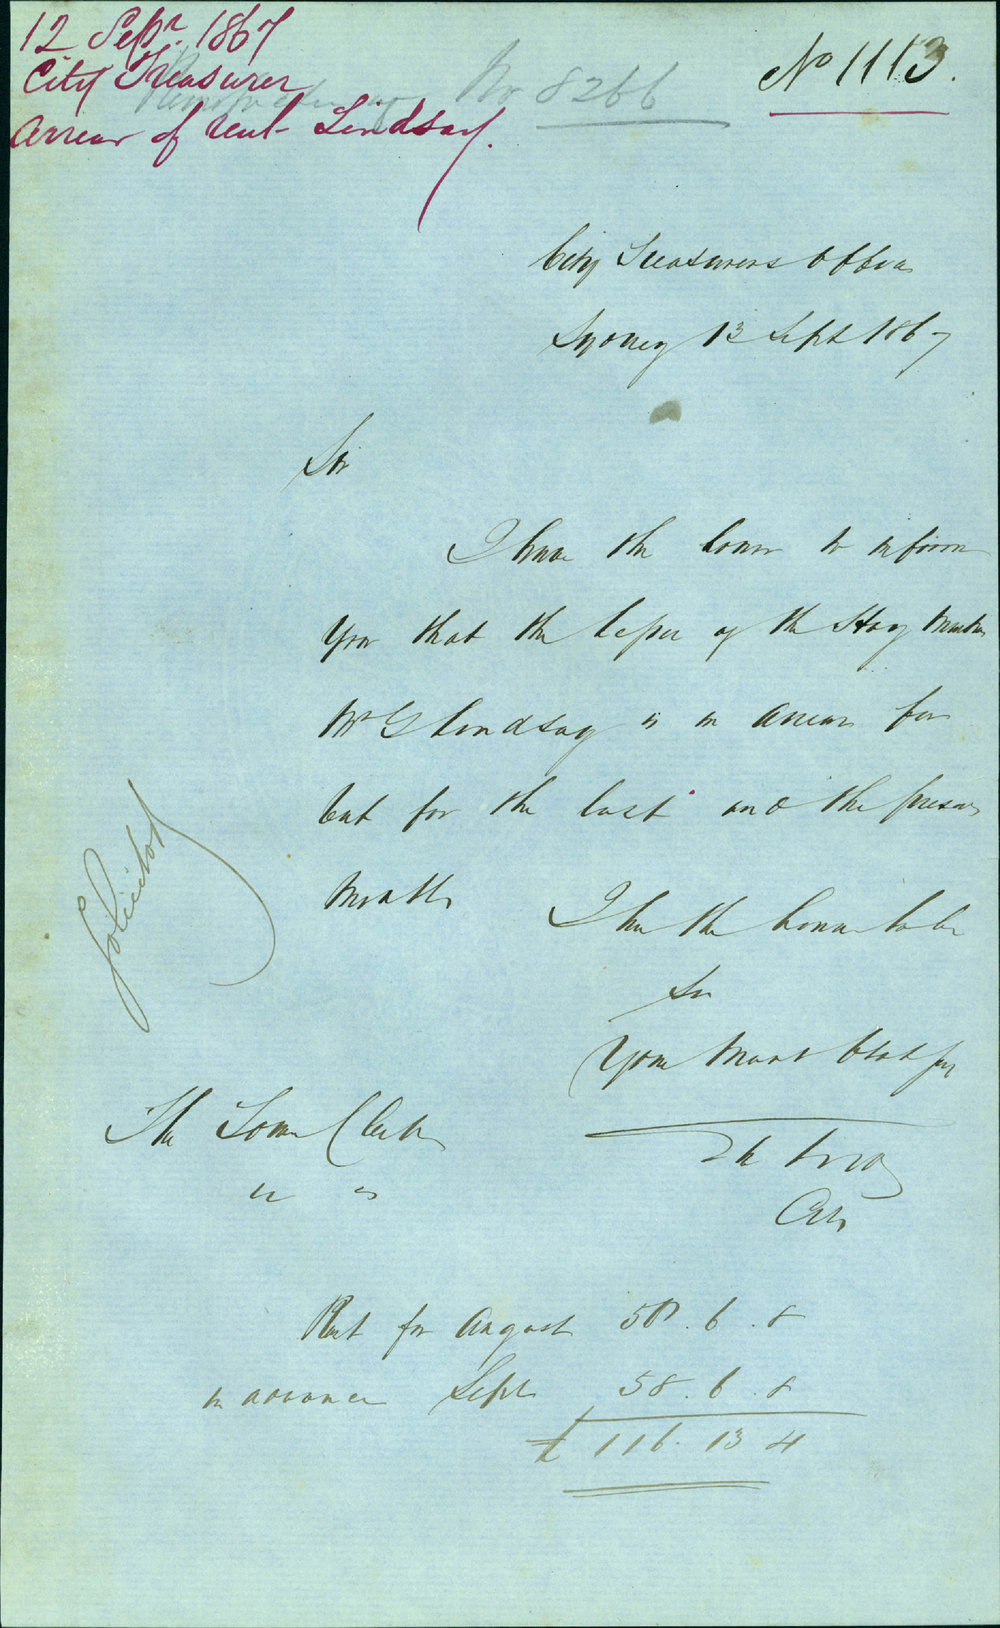 12 Sepr. 1867
City Treasurer
Arrear of rent Lindsay.
No 8266
No 1113.
City Treasurers Office
Sydney 13 Sept 1867
Sir
I have the honor to inform
you that the lessee of the Hay Market
Mr G Lindsay is in arrear for
rent for the last and the present
Month
I have the honor to be
Sir
Your Most Obdt
Solicitor
The Town Clerk
Rent for August 58. 6. 8
in advance Sept 58. 6. 8
£ 116. 13 4